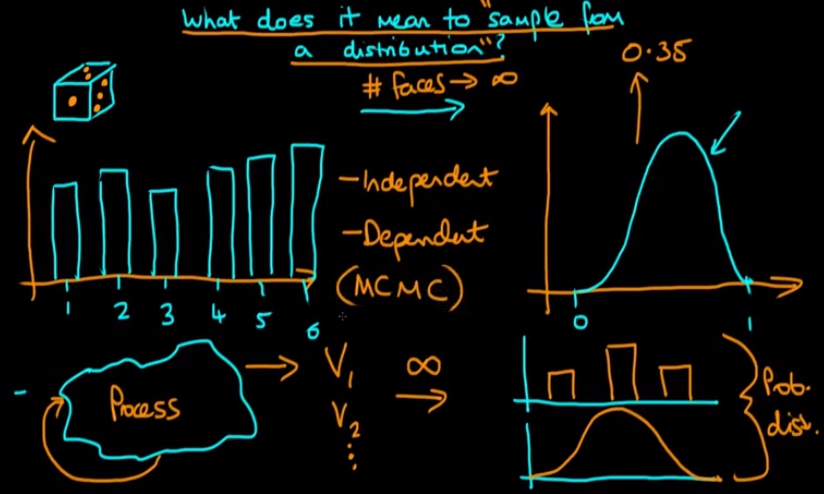 What does it mean to "sample from
a distribution"?
# faces → ∞
0.35
- Independent
- Dependent
(MCMC)
1 2 3 4 5 6
0 1
Process
V₁
V₂
⋮
∞
Prob.
dist.